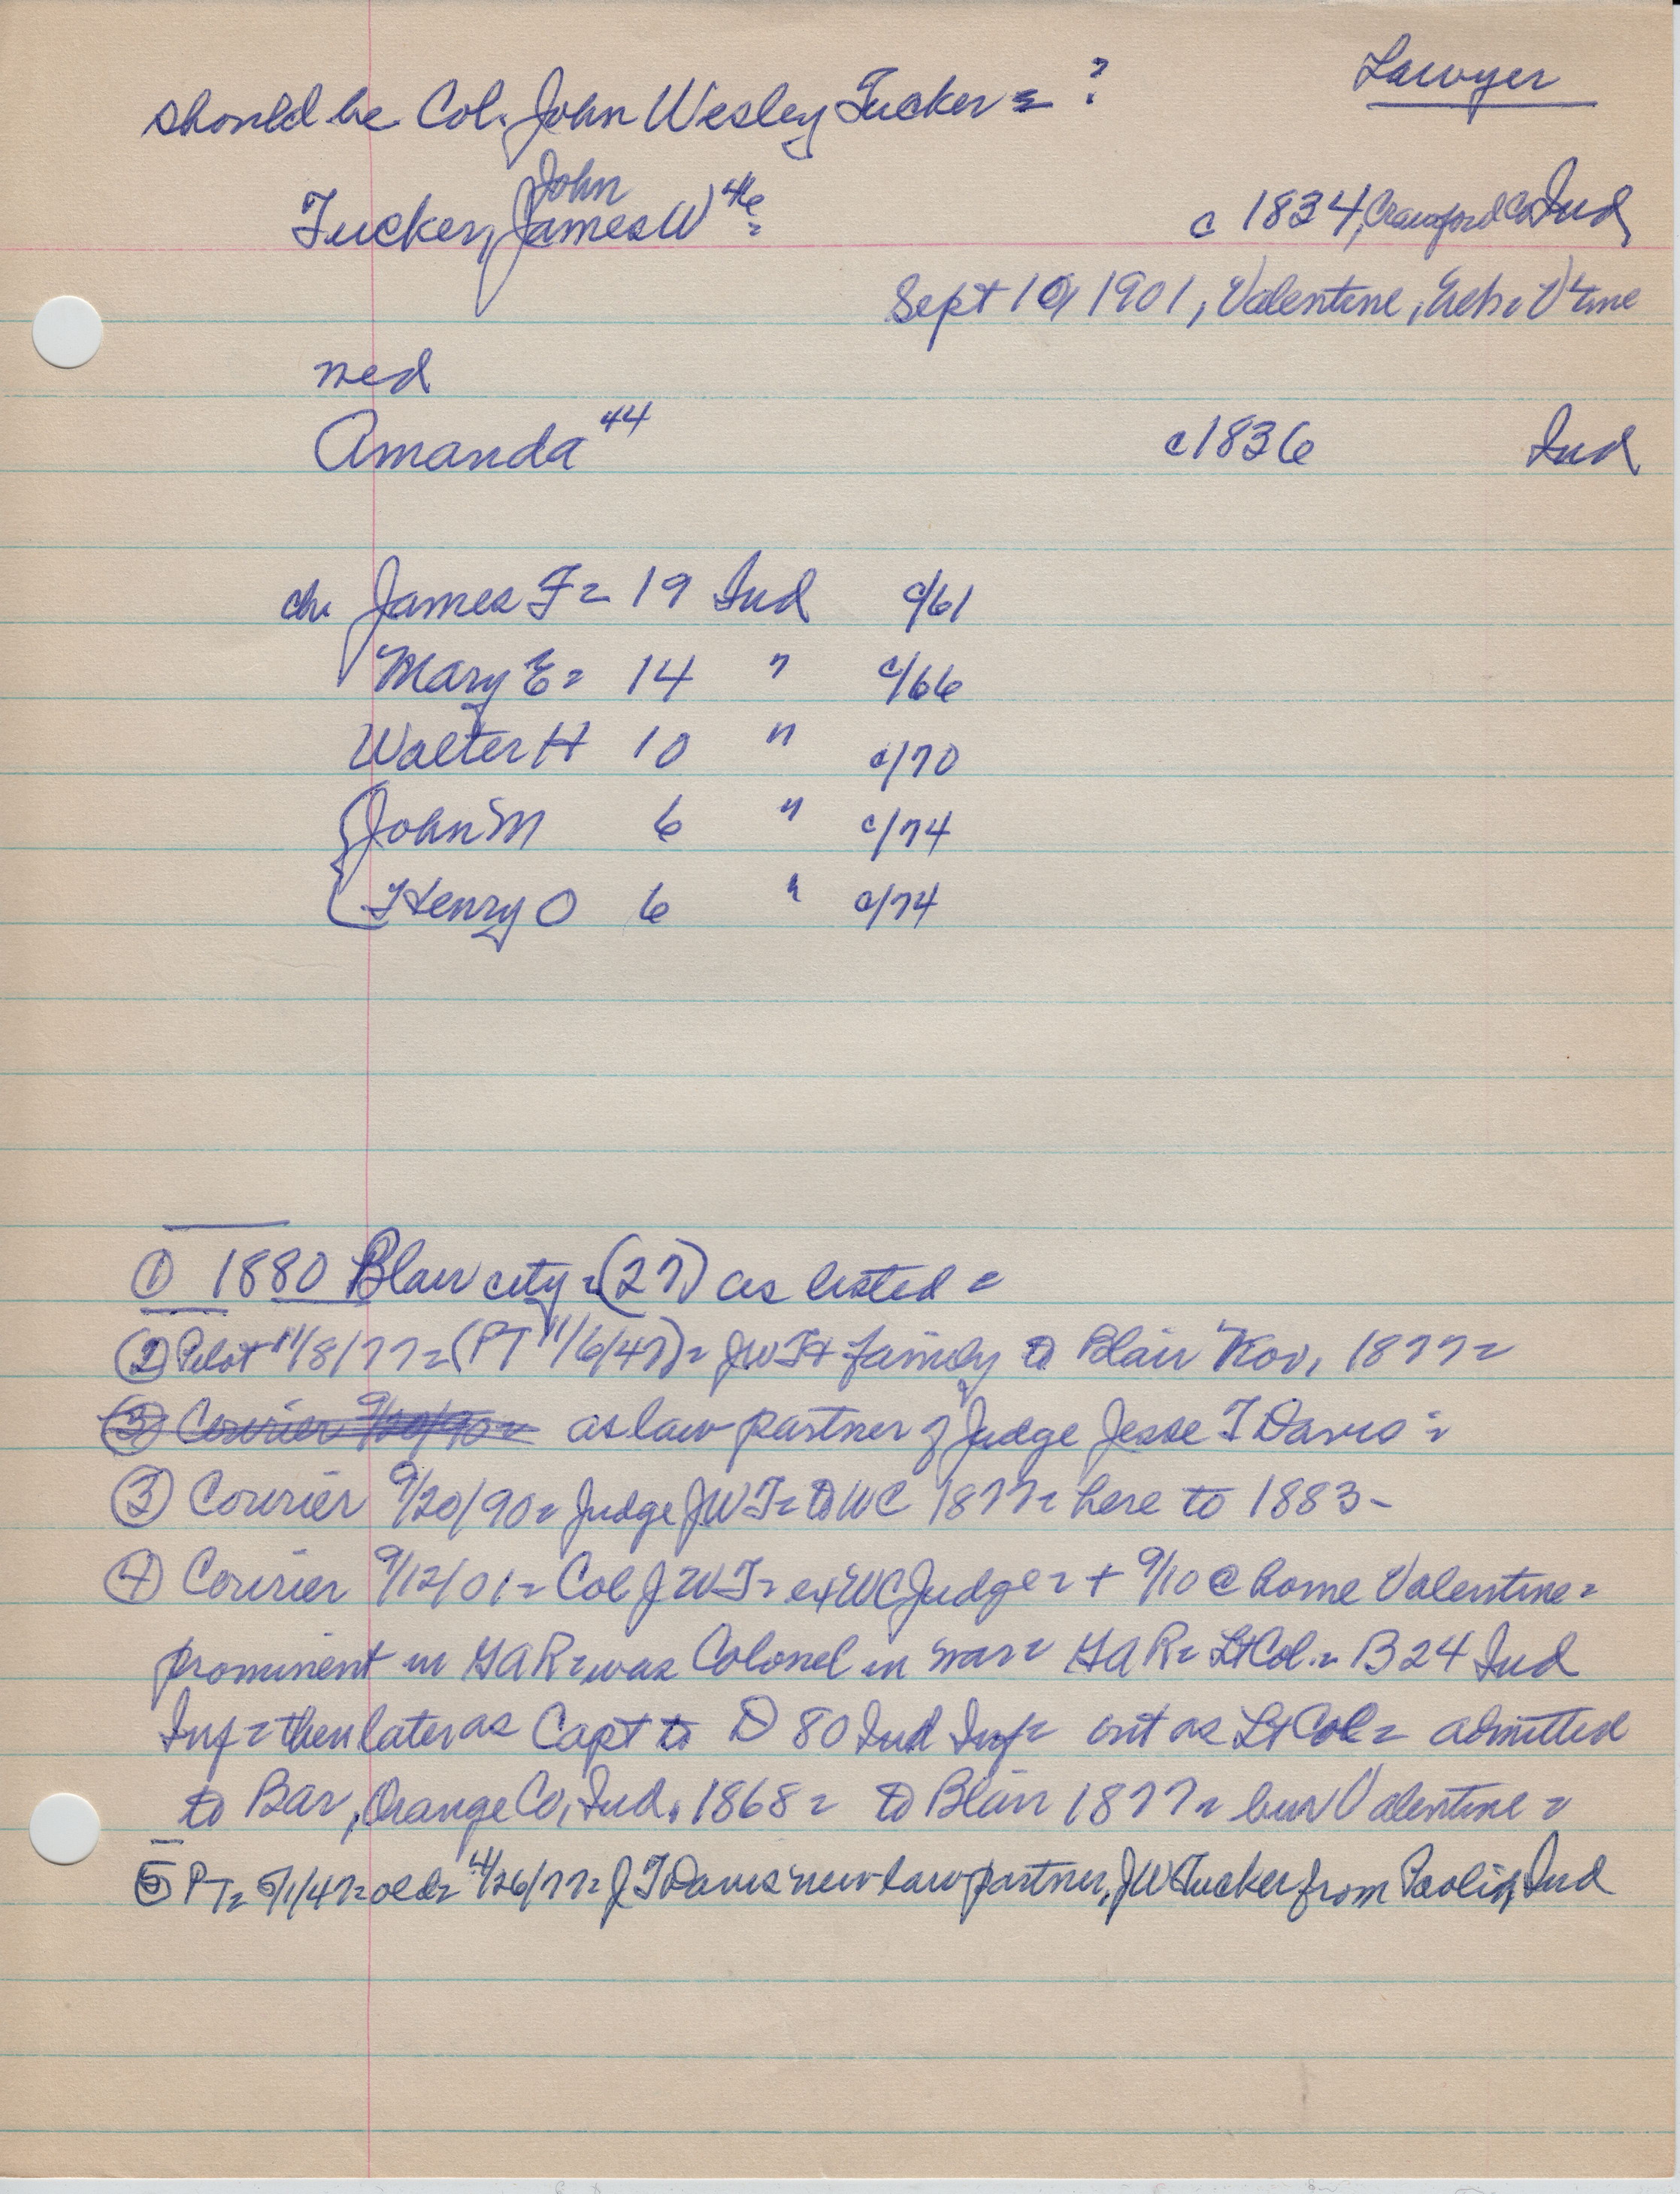 Lawyer
should be Col. John Wesley Tucker = ?
John
Tucker, James W 46 = c 1834, Crawford Co Ind
Sept 10, 1901, Valentine, Neb = V'tine
med
Amanda 44 c 1836 Ind
ch. James F = 19 Ind c/61
Mary E = 14 " c/66
Walter H 10 " c/70
John M 6 " c/74
Henry O 6 " c/74
① 1880 Blair city = (27) as listed =
② Pilot 11/8/77 = (PT 11/6/47) = JWT + family to Blair Nov, 1877 =
③ Courier 9/20/90 = as law partner of Judge Jesse T Davis =
③ Courier 9/20/90 = Judge JWT = to WC 1877 = here to 1883 -
④ Courier 9/12/01 = Col JWT = ex WC Judge = + 9/10 @ home Valentine =
prominent in GAR = was Colonel in war = GAR = Lt Col. = B 24 Ind
Inf = then later as Capt to D 80 Ind Inf = out as Lt Col = admitted
to Bar, Orange Co, Ind. 1868 = to Blair 1877 = bur Valentine =
⑤ PT = 5/1/47 = old = 4/26/77 = J T Davis new law partner, JW Tucker from Paoli, Ind